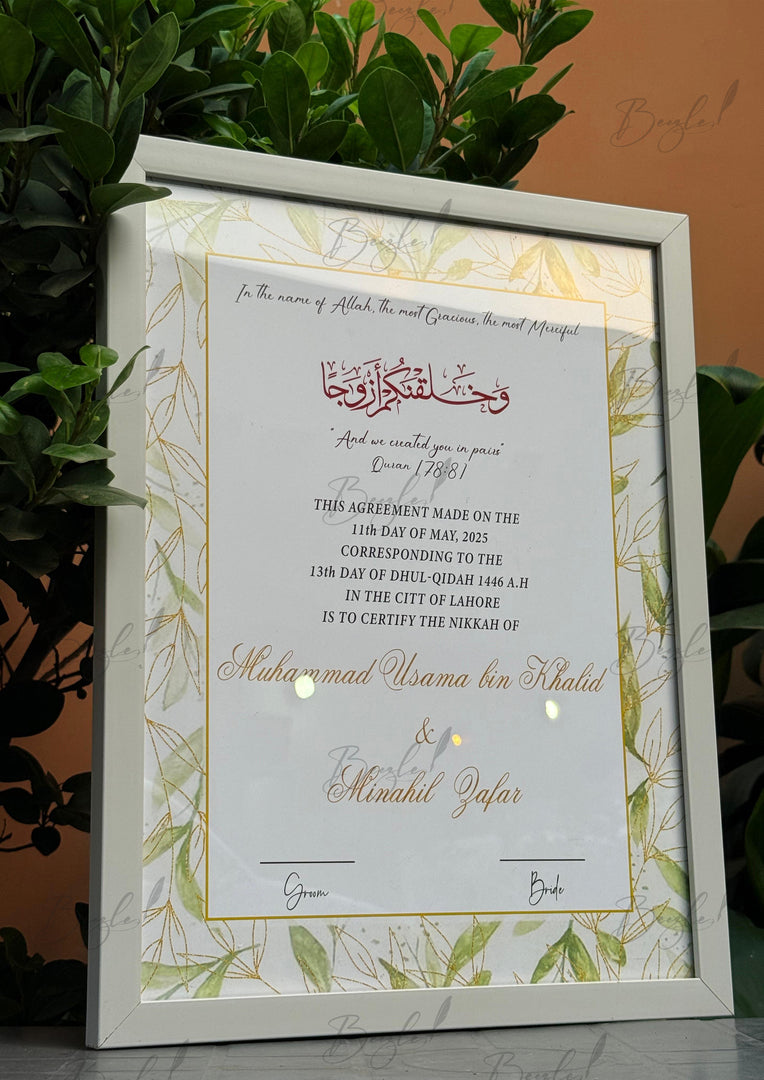 In the name of Allah, the most Gracious, the most Merciful
وَخَلَقْنَكُمْ أَزْوَجًا
"And we created you in pairs"
Quran [78:8]
THIS AGREEMENT MADE ON THE
11th DAY OF MAY, 2025
CORRESPONDING TO THE
13th DAY OF DHUL-QIDAH 1446 A.H
IN THE CITT OF LAHORE
IS TO CERTIFY THE NIKKAH OF
Muhammad Usama bin Khalid
&
Minahil Zafar
Groom
Bride